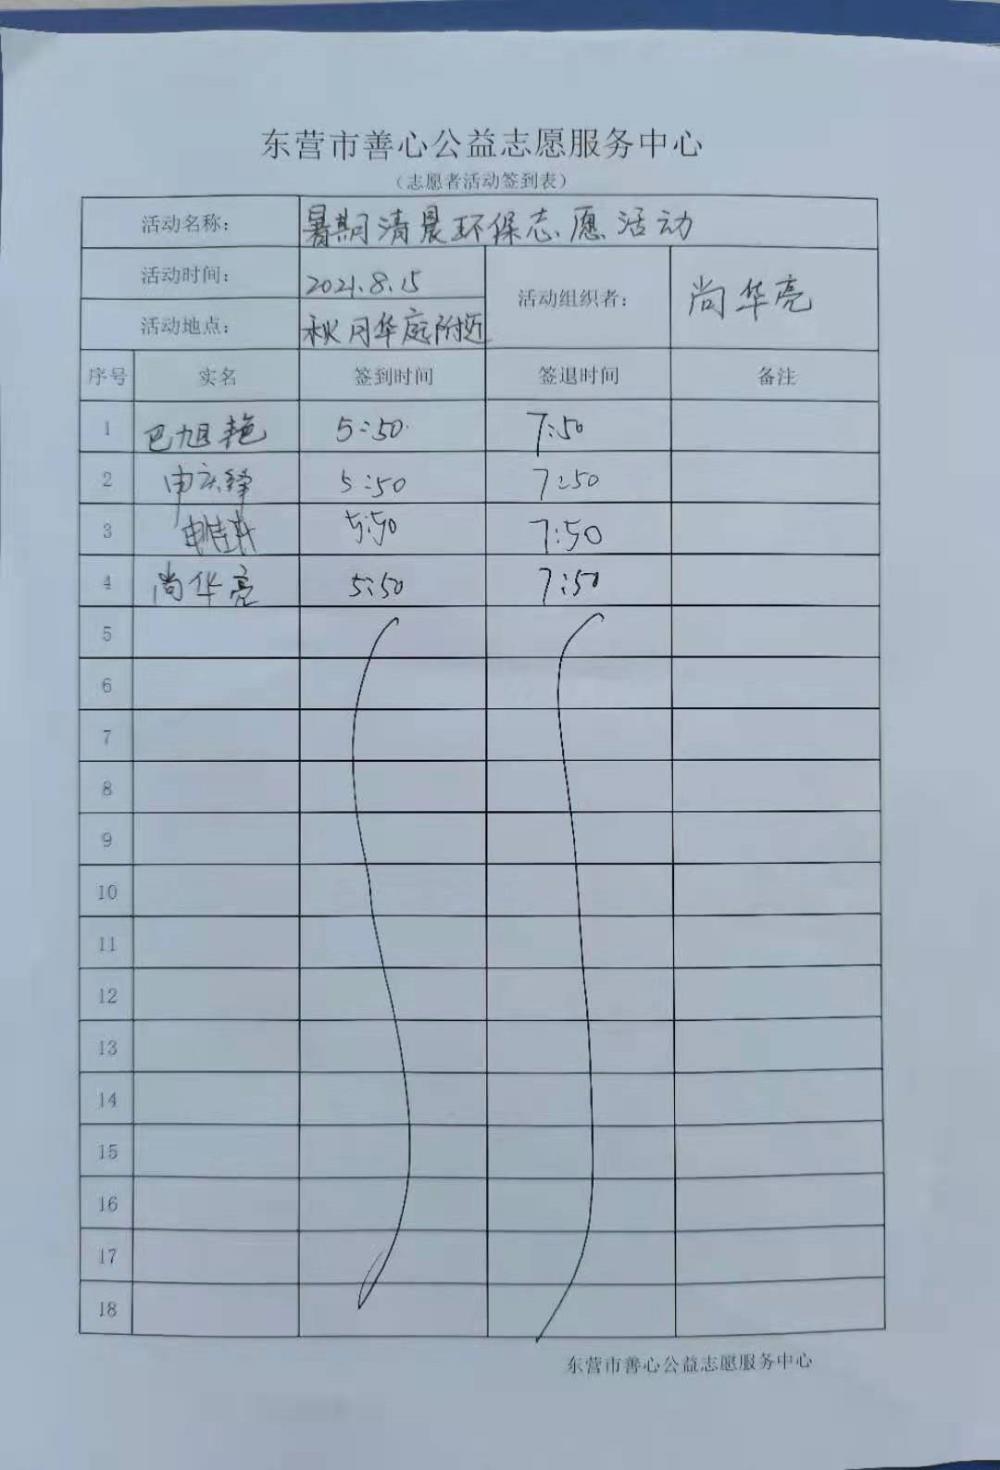 东营市善心公益志愿服务中心
（志愿者活动签到表）
活动名称： 暑期清晨环保志愿活动
活动时间： 2021.8.15 活动组织者： 尚华亮
活动地点： 秋月华庭附近
序号 实名 签到时间 签退时间 备注
1 巴旭艳 5:50 7:50
2 5:50 7:50
3 5:50 7:50
4 尚华亮 5:50 7:50
5
6
7
8
9
10
11
12
13
14
15
16
17
18
东营市善心公益志愿服务中心